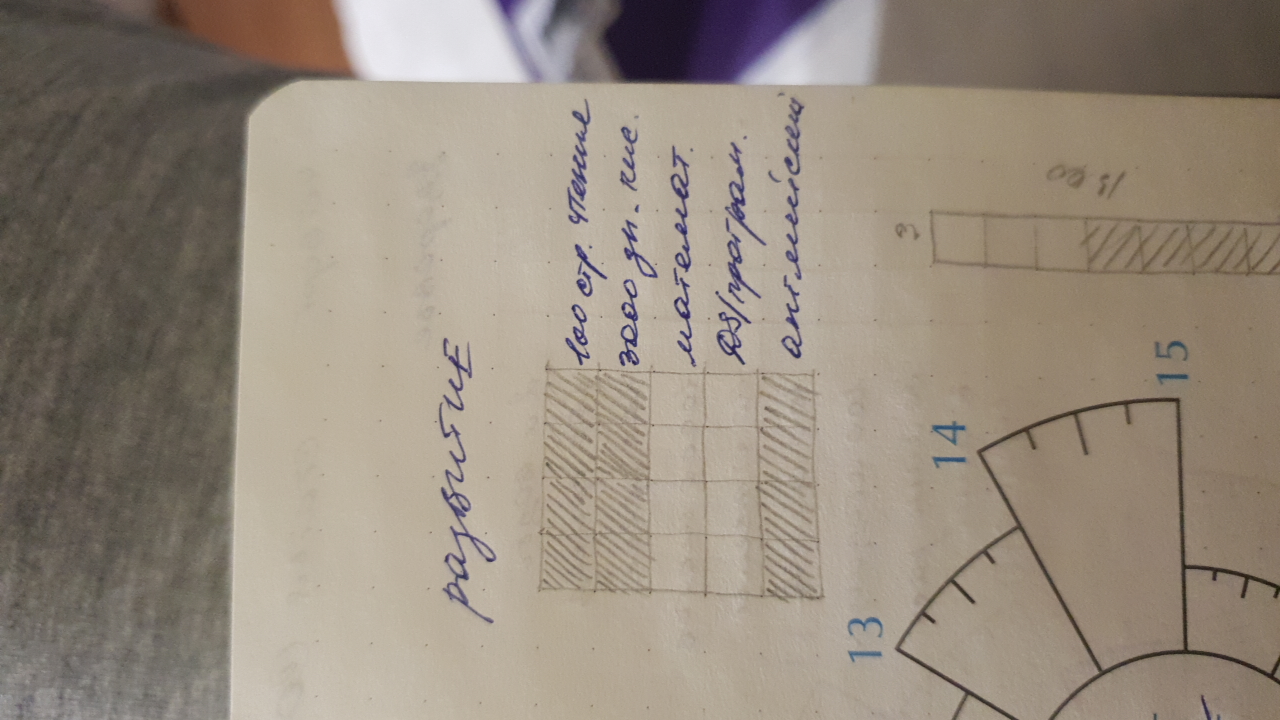 развитие
100 стр. чтения
3000 зн. пис.
математ.
DS/програм.
английский
13
14
15